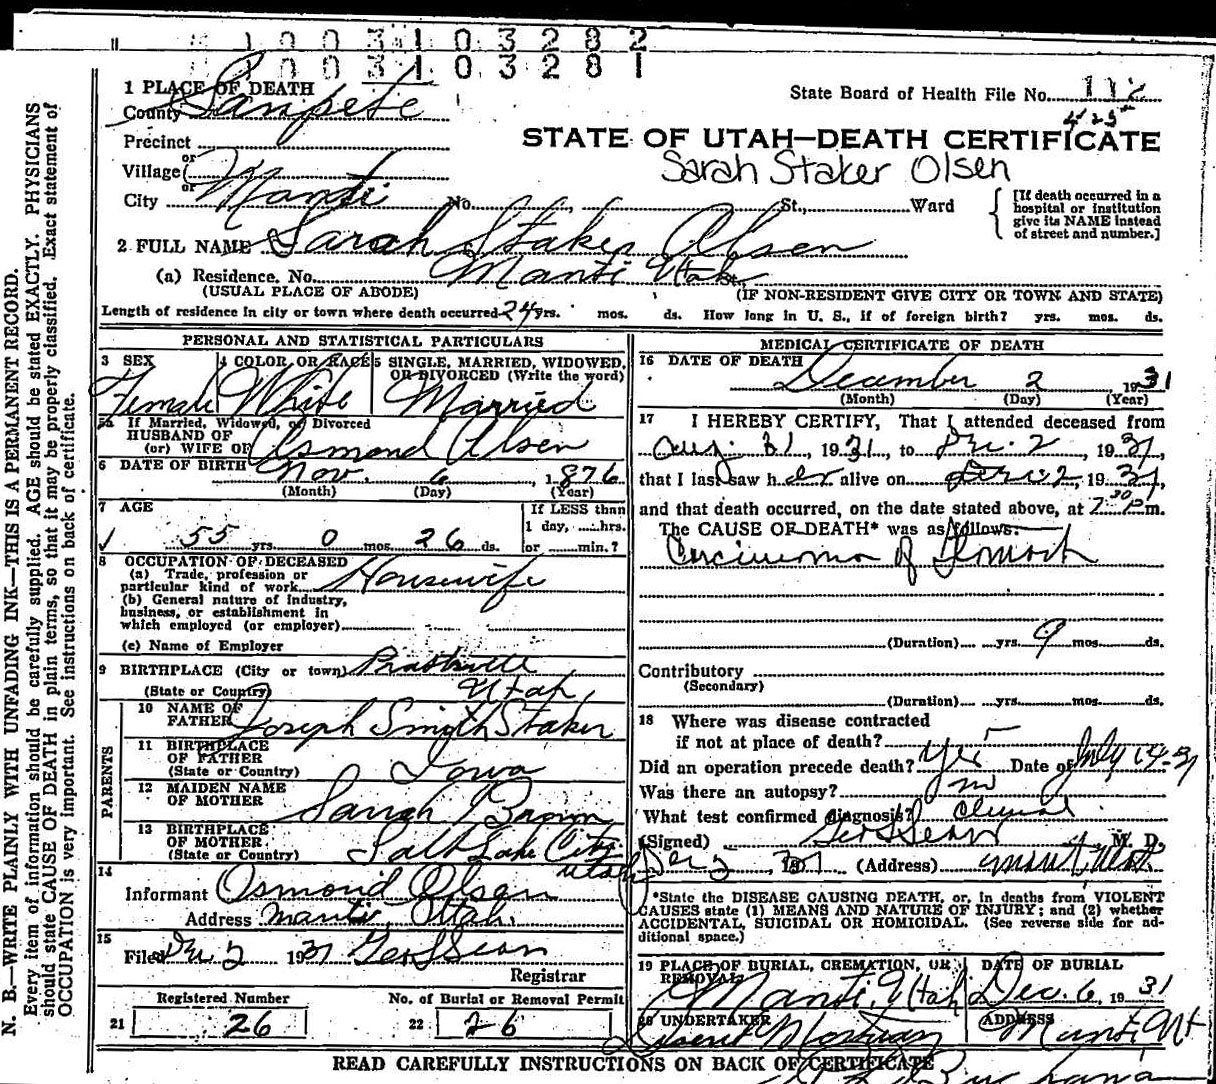 1003103282
1003103281
1 PLACE OF DEATH
County Sanpete
State Board of Health File No. 112
423
Precinct
STATE OF UTAH—DEATH CERTIFICATE
Sarah Staker Olsen
or
Village
or
City Manti No. St., Ward
[If death occurred in a
hospital or institution
give its NAME instead
of street and number.]
2 FULL NAME Sarah Staker Olsen
(a) Residence. No. Manti Utah St.
(USUAL PLACE OF ABODE) (IF NON-RESIDENT GIVE CITY OR TOWN AND STATE)
Length of residence in city or town where death occurred 24 yrs. mos. ds. How long in U. S., if of foreign birth? yrs. mos. ds.
PERSONAL AND STATISTICAL PARTICULARS
3 SEX 4 COLOR OR RACE 5 SINGLE, MARRIED, WIDOWED,
OR DIVORCED (Write the word)
Female White Married
5a If Married, Widowed, or Divorced
HUSBAND OF
(or) WIFE OF Osmond Olsen
6 DATE OF BIRTH Nov. 6, 1876
(Month) (Day) (Year)
7 AGE If LESS than
1 day, hrs.
55 yrs. 0 mos. 26 ds. or min.?
8 OCCUPATION OF DECEASED
(a) Trade, profession or
particular kind of work Housewife
(b) General nature of industry,
business, or establishment in
which employed (or employer)
(c) Name of Employer
9 BIRTHPLACE (City or town)
(State or Country) Utah
PARENTS
10 NAME OF
FATHER Joseph Smith Staker
11 BIRTHPLACE
OF FATHER
(State or Country) Iowa
12 MAIDEN NAME
OF MOTHER Sarah Brown
13 BIRTHPLACE
OF MOTHER
(State or Country) Salt Lake City
Utah
14
Informant Osmond Olsen
Address Manti Utah.
15
Filed Dec 2 1931 Geo L Sears
Registrar
Registered Number No. of Burial or Removal Permit
21 26 22 26
MEDICAL CERTIFICATE OF DEATH
16 DATE OF DEATH
December 2, 1931
(Month) (Day) (Year)
17 I HEREBY CERTIFY, That I attended deceased from
Aug. 31, 1931, to Dec. 2, 1931,
that I last saw her alive on Dec 2, 1931,
and that death occurred, on the date stated above, at 7:30 P.m.
The CAUSE OF DEATH* was as follows:
Carcinoma of Stomach
(Duration) yrs. 9 mos. ds.
Contributory
(Secondary)
(Duration) yrs. mos. ds.
18 Where was disease contracted
if not at place of death?
Did an operation precede death? Yes Date of July 14-31
Was there an autopsy? no
What test confirmed diagnosis? Clinical
(Signed) Geo L Sears M. D.
Dec 2 1931 (Address) Manti Utah
*State the DISEASE CAUSING DEATH, or, in deaths from VIOLENT
CAUSES state (1) MEANS AND NATURE OF INJURY; and (2) whether
ACCIDENTAL, SUICIDAL OR HOMICIDAL. (See reverse side for ad-
ditional space.)
19 PLACE OF BURIAL, CREMATION, OR DATE OF BURIAL
REMOVAL
Manti, Utah Dec. 6, 1931
20 UNDERTAKER ADDRESS
Mortuary Manti Ut
READ CAREFULLY INSTRUCTIONS ON BACK OF CERTIFICATE
N. B.—WRITE PLAINLY WITH UNFADING INK—THIS IS A PERMANENT RECORD.
Every item of information should be carefully supplied. AGE should be stated EXACTLY. PHYSICIANS
should state CAUSE OF DEATH in plain terms, so that it may be properly classified. Exact statement of
OCCUPATION is very important. See instructions on back of certificate.